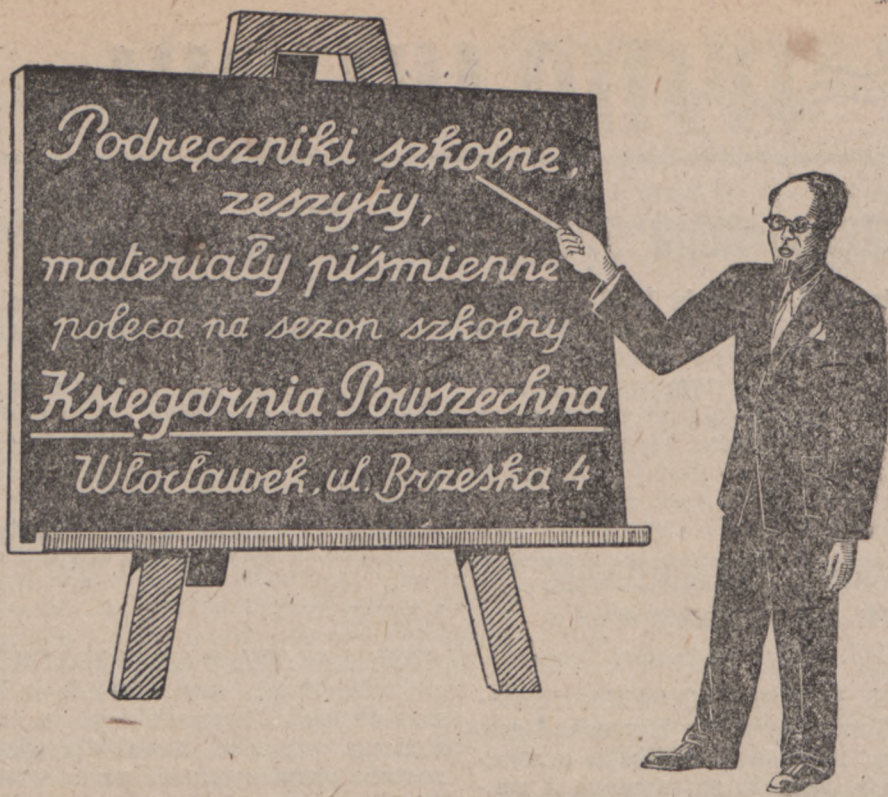 Podręczniki szkolne,
zeszyty,
materiały piśmienne
poleca na sezon szkolny
Księgarnia Powszechna
Włocławek, ul. Brzeska 4